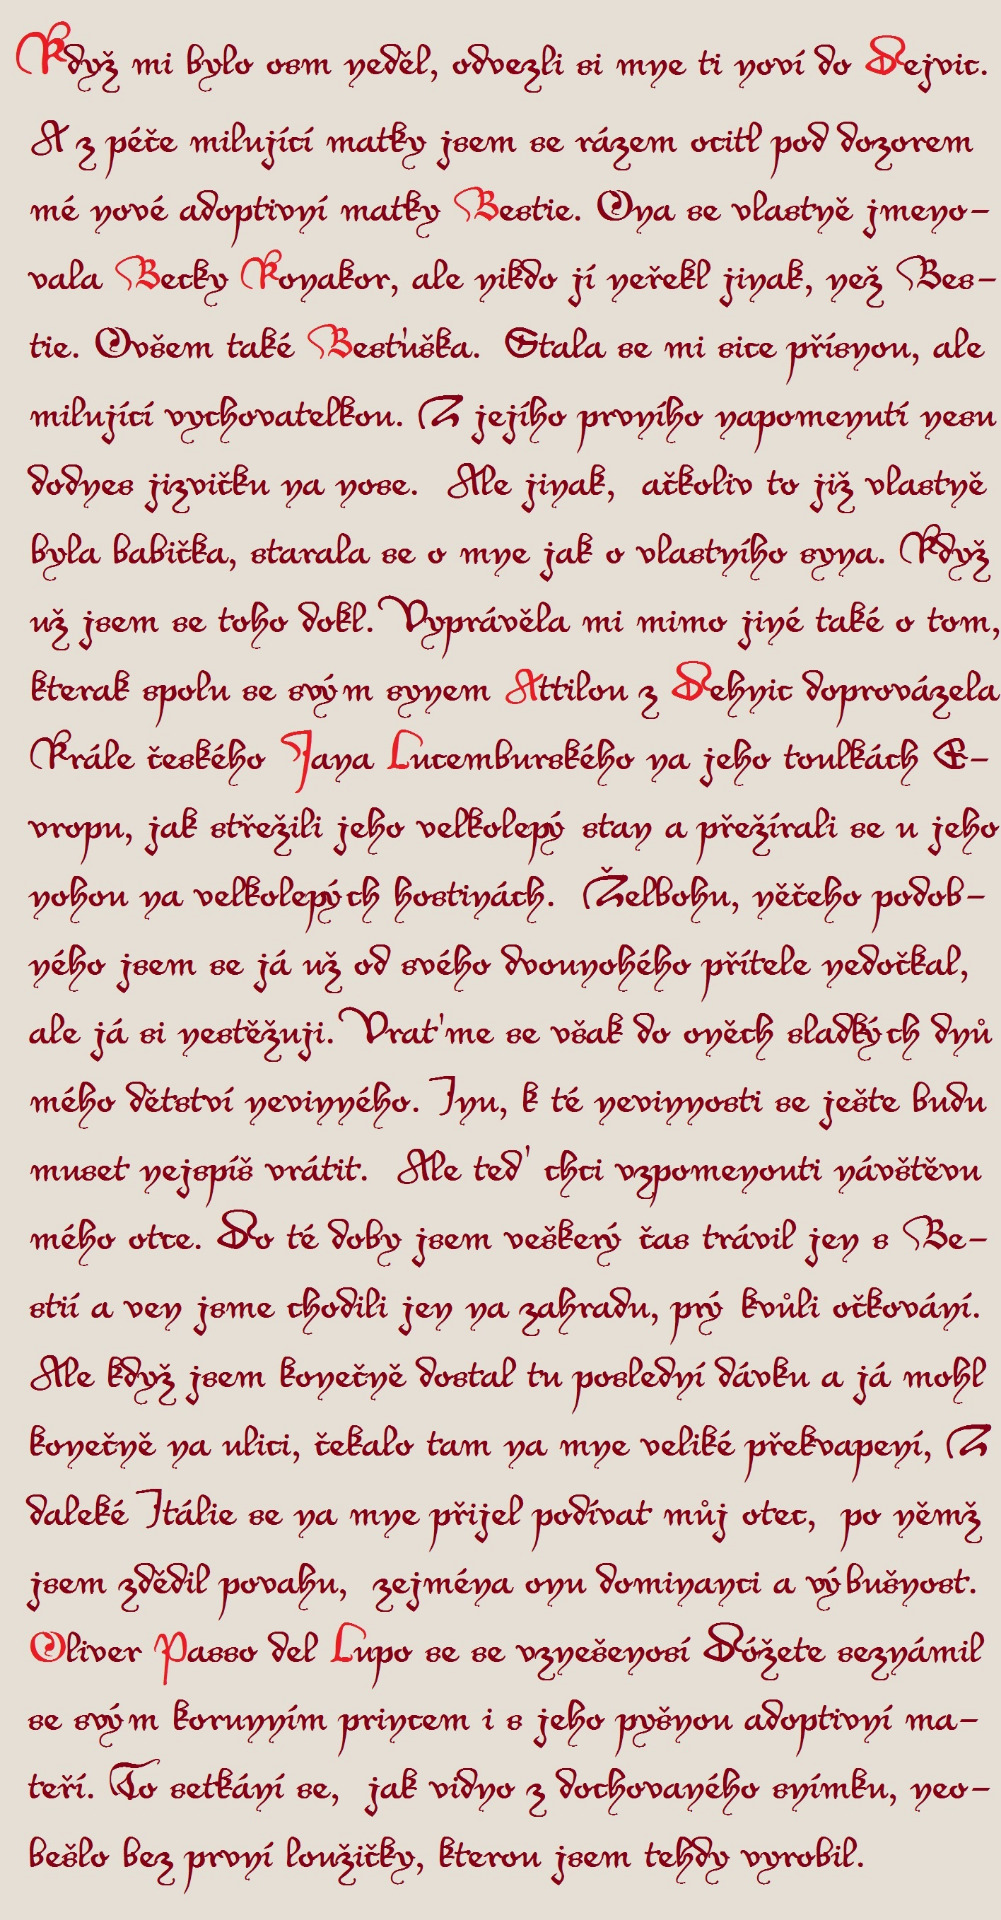 Když mi bylo osm neděl, odvezli si mne ti noví do Dejvic.
A z péče milující matky jsem se rázem ocitl pod dozorem
mé nové adoptivní matky Bestie. Ona se vlastně jmeno-
vala Becky Konakor, ale nikdo jí neřekl jinak, než Bes-
tie. Ovšem také Besťuška. Stala se mi sice přísnou, ale
milující vychovatelkou. Z jejího prvního napomenutí nesu
dodnes jizvičku na nose. Ale jinak, ačkoliv to již vlastně
byla babička, starala se o mne jak o vlastního syna. Když
už jsem se toho dokl. Vyprávěla mi mimo jiné také o tom,
kterak spolu se svým synem Attilou z Dehnic doprovázela
Krále českého Jana Lucemburského na jeho toulkách E-
vropu, jak střežili jeho velkolepý stan a přežírali se u jeho
nohou na velkolepých hostinách. Želbohu, něčeho podob-
ného jsem se já už od svého dvounohého přítele nedočkal,
ale já si nestěžuji. Vraťme se však do oněch sladkých dnů
mého dětství nevinného. Inu, k té nevinnosti se ješte budu
muset nejspíš vrátit. Ale teď chci vzpomenouti návštěvu
mého otce. Do té doby jsem veškerý čas trávil jen s Be-
stií a ven jsme chodili jen na zahradu, prý kvůli očkování.
Ale když jsem konečně dostal tu poslední dávku a já mohl
konečně na ulici, čekalo tam na mne veliké překvapení, Z
daleké Itálie se na mne přijel podívat můj otec, po němž
jsem zdědil povahu, zejména onu dominanci a výbušnost.
Oliver Passo del Lupo se se vznešenosí Dóžete seznámil
se svým korunním princem i s jeho pyšnou adoptivní ma-
teří. To setkání se, jak vidno z dochovaného snímku, neo-
bešlo bez první loužičky, kterou jsem tehdy vyrobil.